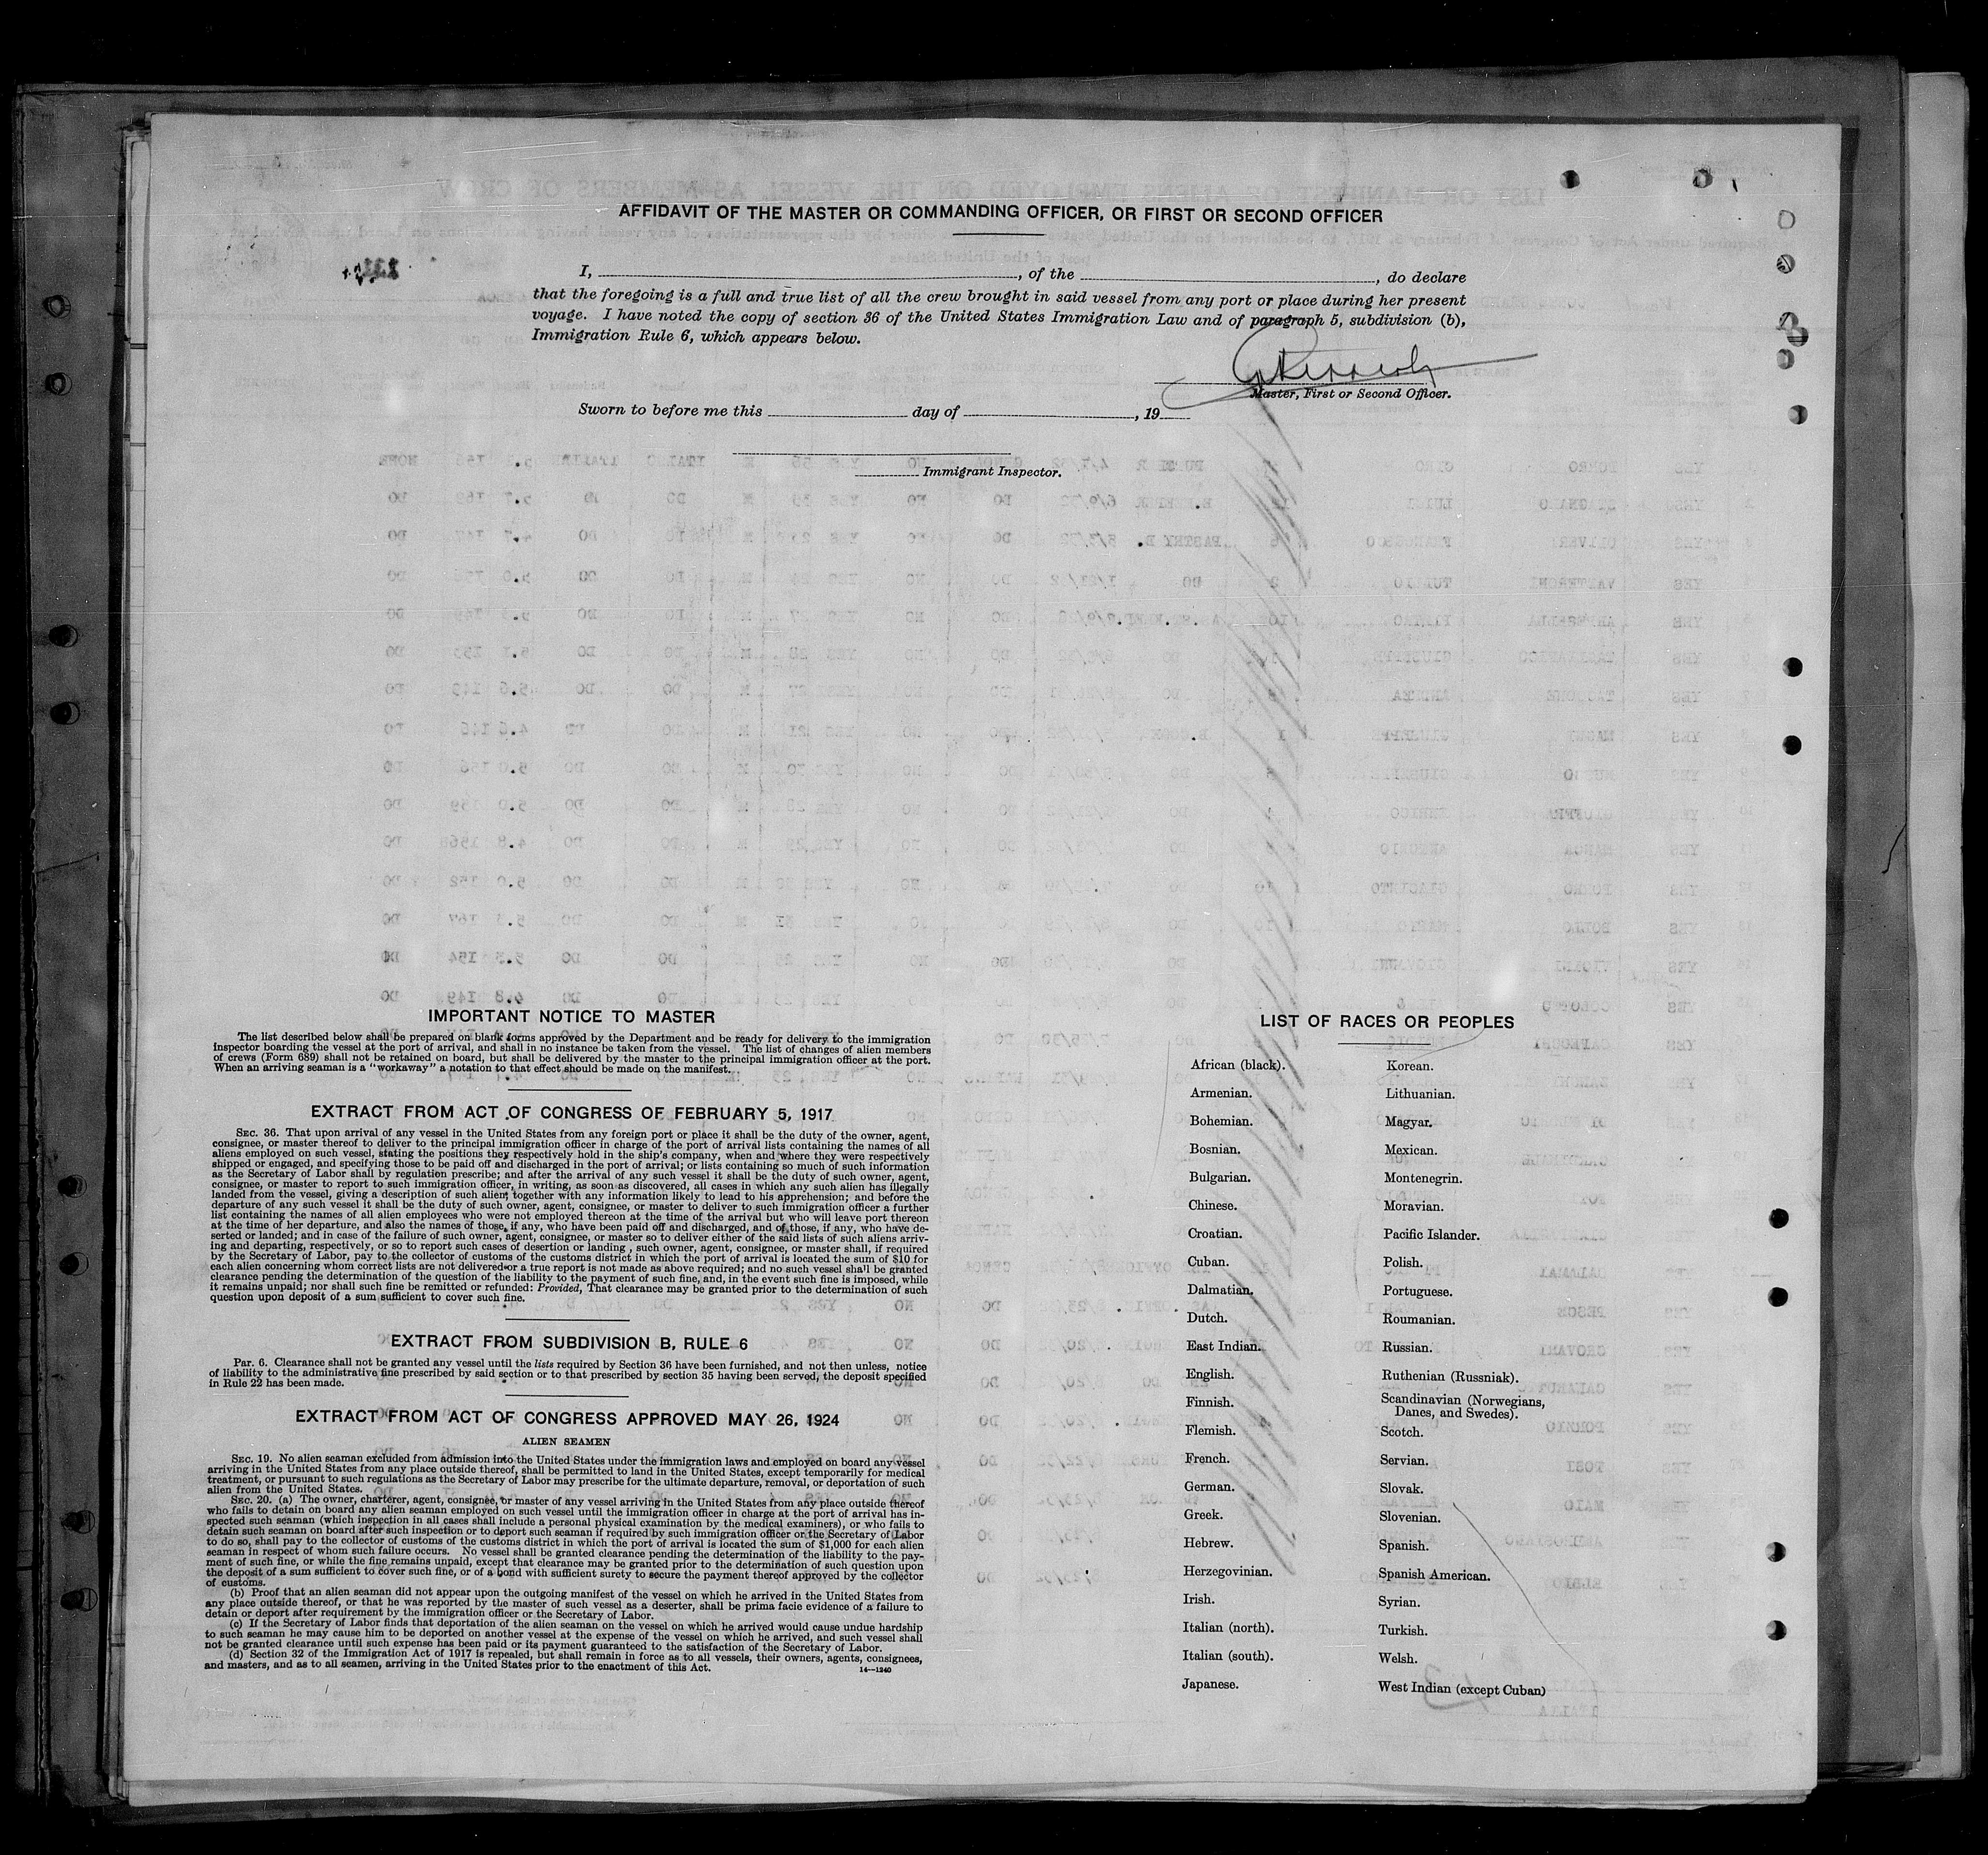 AFFIDAVIT OF THE MASTER OR COMMANDING OFFICER, OR FIRST OR SECOND OFFICER
I, , of the , do declare
that the foregoing is a full and true list of all the crew brought in said vessel from any port or place during her present
voyage. I have noted the copy of section 36 of the United States Immigration Law and of paragraph 5, subdivision (b),
Immigration Rule 6, which appears below.
Master, First or Second Officer.
Sworn to before me this day of , 19
Immigrant Inspector.
IMPORTANT NOTICE TO MASTER
The list described below shall be prepared on blank forms approved by the Department and be ready for delivery to the immigration
inspector boarding the vessel at the port of arrival, and shall in no instance be taken from the vessel. The list of changes of alien members
of crews (Form 689) shall not be retained on board, but shall be delivered by the master to the principal immigration officer at the port.
When an arriving seaman is a "workaway" a notation to that effect should be made on the manifest.
EXTRACT FROM ACT OF CONGRESS OF FEBRUARY 5, 1917
SEC. 36. That upon arrival of any vessel in the United States from any foreign port or place it shall be the duty of the owner, agent,
consignee, or master thereof to deliver to the principal immigration officer in charge of the port of arrival lists containing the names of all
aliens employed on such vessel, stating the positions they respectively hold in the ship's company, when and where they were respectively
shipped or engaged, and specifying those to be paid off and discharged in the port of arrival; or lists containing so much of such information
as the Secretary of Labor shall by regulation prescribe; and after the arrival of any such vessel it shall be the duty of such owner, agent,
consignee, or master to report to such immigration officer, in writing, as soon as discovered, all cases in which any such alien has illegally
landed from the vessel, giving a description of such alien, together with any information likely to lead to his apprehension; and before the
departure of any such vessel it shall be the duty of such owner, agent, consignee, or master to deliver to such immigration officer a further
list containing the names of all alien employees who were not employed thereon at the time of the arrival but who will leave port thereon
at the time of her departure, and also the names of those, if any, who have been paid off and discharged, and of those, if any, who have de-
serted or landed; and in case of the failure of such owner, agent, consignee, or master so to deliver either of the said lists of such aliens arriv-
ing and departing, respectively, or so to report such cases of desertion or landing , such owner, agent, consignee, or master shall, if required
by the Secretary of Labor, pay to the collector of customs of the customs district in which the port of arrival is located the sum of $10 for
each alien concerning whom correct lists are not delivered or a true report is not made as above required; and no such vessel shall be granted
clearance pending the determination of the question of the liability to the payment of such fine, and, in the event such fine is imposed, while
it remains unpaid; nor shall such fine be remitted or refunded: Provided, That clearance may be granted prior to the determination of such
question upon deposit of a sum sufficient to cover such fine.
EXTRACT FROM SUBDIVISION B, RULE 6
Par. 6. Clearance shall not be granted any vessel until the lists required by Section 36 have been furnished, and not then unless, notice
of liability to the administrative fine prescribed by said section or to that prescribed by section 35 having been served, the deposit specified
in Rule 22 has been made.
EXTRACT FROM ACT OF CONGRESS APPROVED MAY 26, 1924
ALIEN SEAMEN
SEC. 19. No alien seaman excluded from admission into the United States under the immigration laws and employed on board any vessel
arriving in the United States from any place outside thereof, shall be permitted to land in the United States, except temporarily for medical
treatment, or pursuant to such regulations as the Secretary of Labor may prescribe for the ultimate departure, removal, or deportation of such
alien from the United States.
SEC. 20. (a) The owner, charterer, agent, consignee, or master of any vessel arriving in the United States from any place outside thereof
who fails to detain on board any alien seaman employed on such vessel until the immigration officer in charge at the port of arrival has in-
spected such seaman (which inspection in all cases shall include a personal physical examination by the medical examiners), or who fails to
detain such seaman on board after such inspection or to deport such seaman if required by such immigration officer or the Secretary of Labor
to do so, shall pay to the collector of customs of the customs district in which the port of arrival is located the sum of $1,000 for each alien
seaman in respect of whom such failure occurs. No vessel shall be granted clearance pending the determination of the liability to the pay-
ment of such fine, or while the fine remains unpaid, except that clearance may be granted prior to the determination of such question upon
the deposit of a sum sufficient to cover such fine, or of a bond with sufficient surety to secure the payment thereof approved by the collector
of customs.
(b) Proof that an alien seaman did not appear upon the outgoing manifest of the vessel on which he arrived in the United States from
any place outside thereof, or that he was reported by the master of such vessel as a deserter, shall be prima facie evidence of a failure to
detain or deport after requirement by the immigration officer or the Secretary of Labor.
(c) If the Secretary of Labor finds that deportation of the alien seaman on the vessel on which he arrived would cause undue hardship
to such seaman he may cause him to be deported on another vessel at the expense of the vessel on which he arrived, and such vessel shall
not be granted clearance until such expense has been paid or its payment guaranteed to the satisfaction of the Secretary of Labor.
(d) Section 32 of the Immigration Act of 1917 is repealed, but shall remain in force as to all vessels, their owners, agents, consignees,
and masters, and as to all seamen, arriving in the United States prior to the enactment of this Act.
14—1240
LIST OF RACES OR PEOPLES
African (black).
Armenian.
Bohemian.
Bosnian.
Bulgarian.
Chinese.
Croatian.
Cuban.
Dalmatian.
Dutch.
East Indian.
English.
Finnish.
Flemish.
French.
German.
Greek.
Hebrew.
Herzegovinian.
Irish.
Italian (north).
Italian (south).
Japanese.
Korean.
Lithuanian.
Magyar.
Mexican.
Montenegrin.
Moravian.
Pacific Islander.
Polish.
Portuguese.
Roumanian.
Russian.
Ruthenian (Russniak).
Scandinavian (Norwegians,
Danes, and Swedes).
Scotch.
Servian.
Slovak.
Slovenian.
Spanish.
Spanish American.
Syrian.
Turkish.
Welsh.
West Indian (except Cuban)